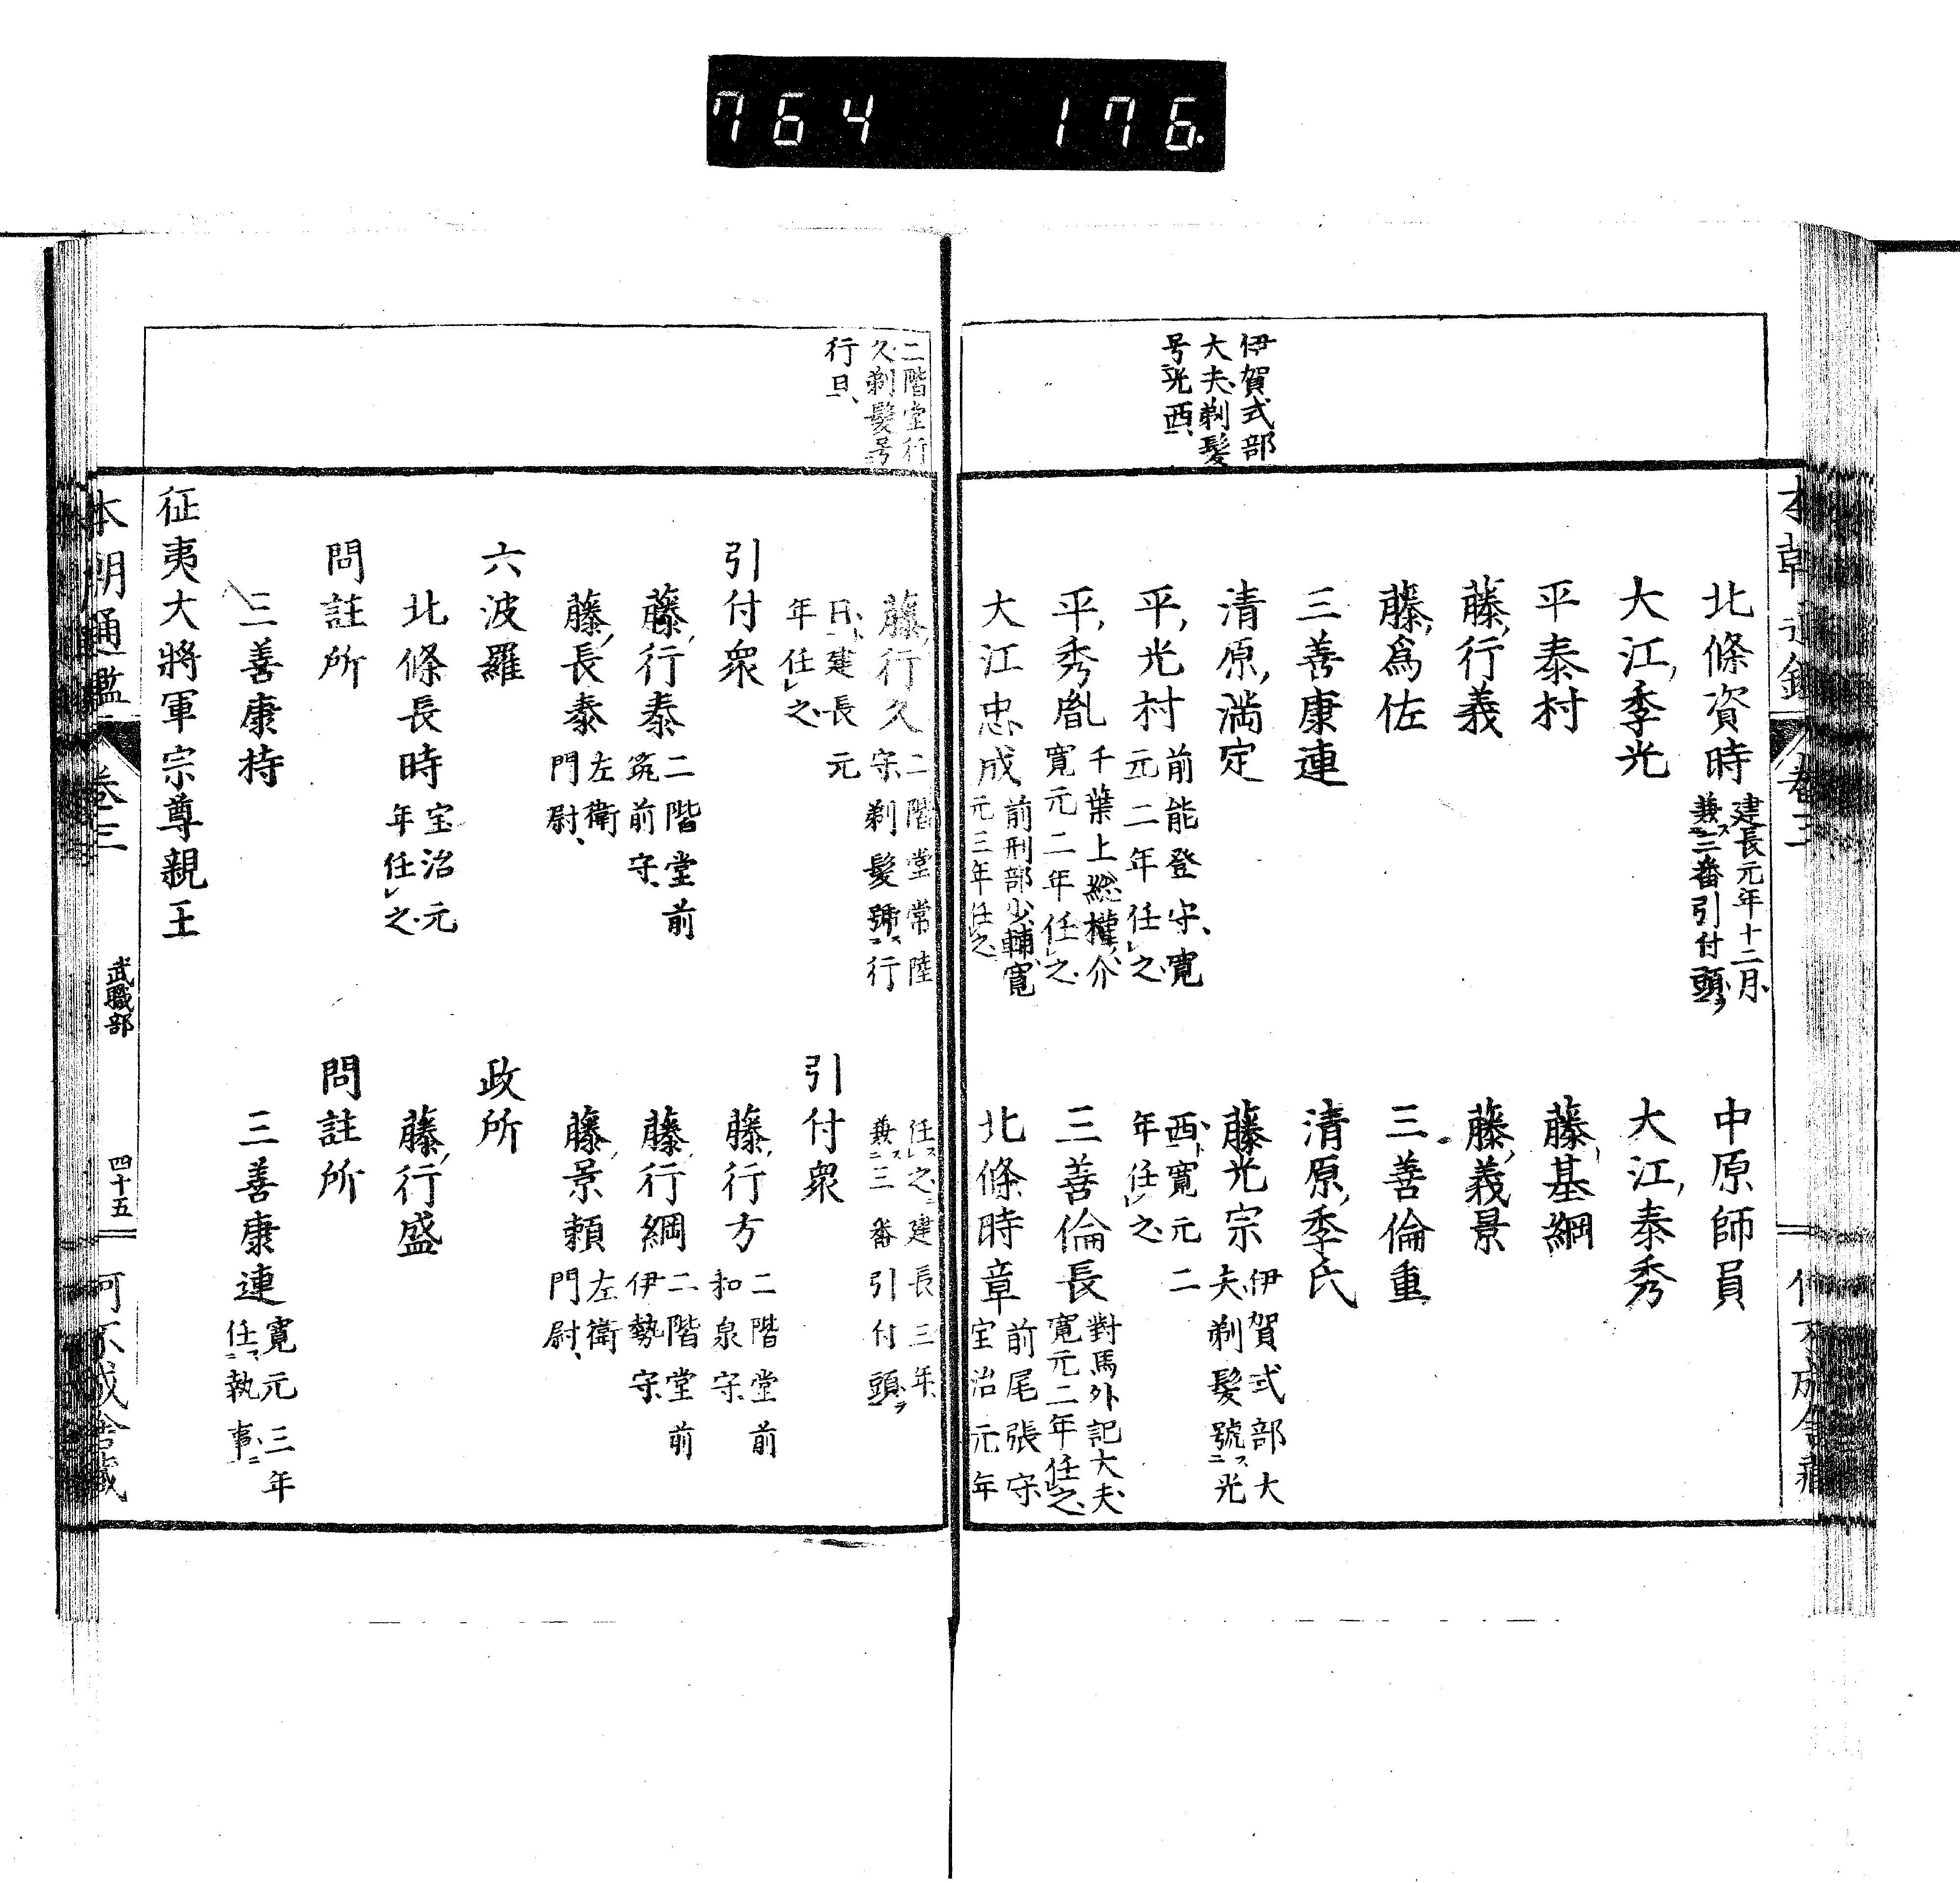 764 176
伊賀式部
大夫剃髮
号光西、
北條資時 建長元年十二月
兼三番引付頭
中原師員
大江季光
大江泰秀
平泰村
藤基綱
藤行義
藤義景
藤爲佐
三善倫重
三善康連
清原季氏
清原滿定
藤光宗 伊賀式部大
夫剃髮號光
平光村 前能登守、寬
元二年任之
西寬元二
年任之
平秀胤 千葉上総權介
寬元二年任之
三善倫長 對馬外記大夫
寬元二年任之
大江忠成 前刑部少輔寬
元三年任之
北條時章 前尾張守
宝治元年
二階堂行
久剃髮号
行旦、
藤行久 二階堂常陸
守剃髮號行
任之建長三年
兼三番引付頭
日建長元
年任之
引付衆
引付衆
藤行方 二階堂前
和泉守
藤行泰 二階堂前
筑前守、
藤行綱 二階堂前
伊勢守
藤長泰 左衛
門尉、
藤景頼 左衛
門尉、
六波羅
政所
北條長時 宝治元
年任之
藤行盛
問註所
問註所
三善康持
三善康連 寬元三年
任執事
征夷大將軍宗尊親王
本朝通鑑 卷三 武職部 四十五